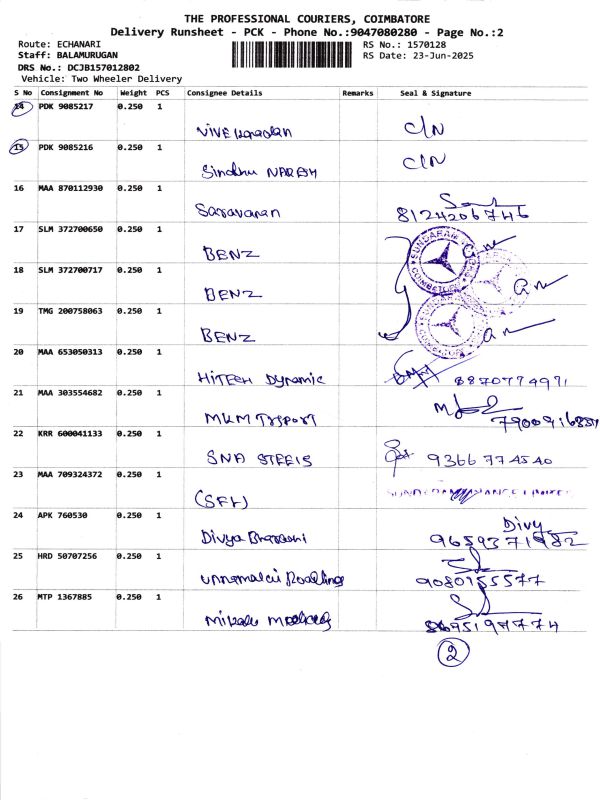 THE PROFESSIONAL COURIERS, COIMBATORE
Delivery Runsheet - PCK - Phone No.:9047080280 - Page No.:2
Route: ECHANARI
Staff: BALAMURUGAN
DRS No.: DCJB157012802
Vehicle: Two Wheeler Delivery
RS No.: 1570128
RS Date: 23-Jun-2025
S No Consignment No Weight PCS Consignee Details Remarks Seal & Signature
14 PDK 9085217 0.250 1
C/N
15 PDK 9085216 0.250 1
Sindhu NARESH C/N
16 MAA 870112930 0.250 1
Saravanan 8124206746
17 SLM 372700650 0.250 1
BENZ
18 SLM 372700717 0.250 1
BENZ
19 TMG 200758063 0.250 1
BENZ
SUNDARAM
COIMBATORE
20 MAA 653050313 0.250 1
HITECH Dynamic 8870774971
21 MAA 303554682 0.250 1
MKM
22 KRR 600041133 0.250 1
SNA STEELS 9366774540
23 MAA 709324372 0.250 1
(SFL)
24 APK 760530 0.250 1
Divya Divy
9659371982
25 HRD 50707256 0.250 1
9080155577
26 MTP 1367885 0.250 1
2